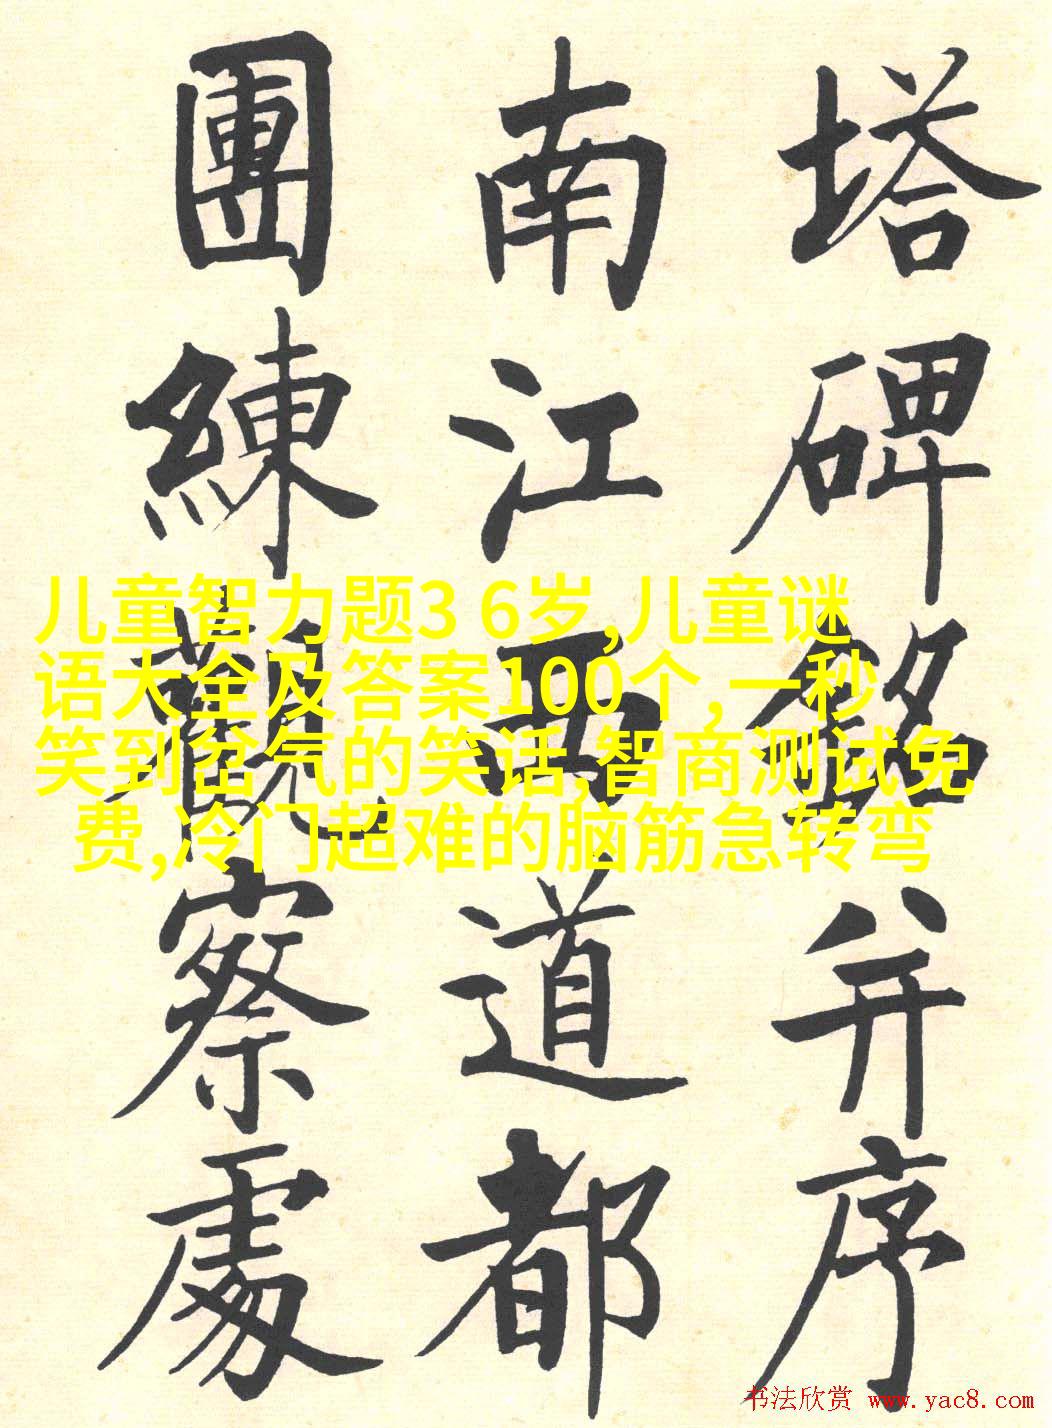 塔碑銘并序
南江西道都
團練觀察處
儿童智力题3 6岁,儿童谜
语大全及答案100个, 一秒
笑到岔气的笑话,智商测试免
费,冷门超难的脑筋急转弯
书法欣赏 www.yac8.com